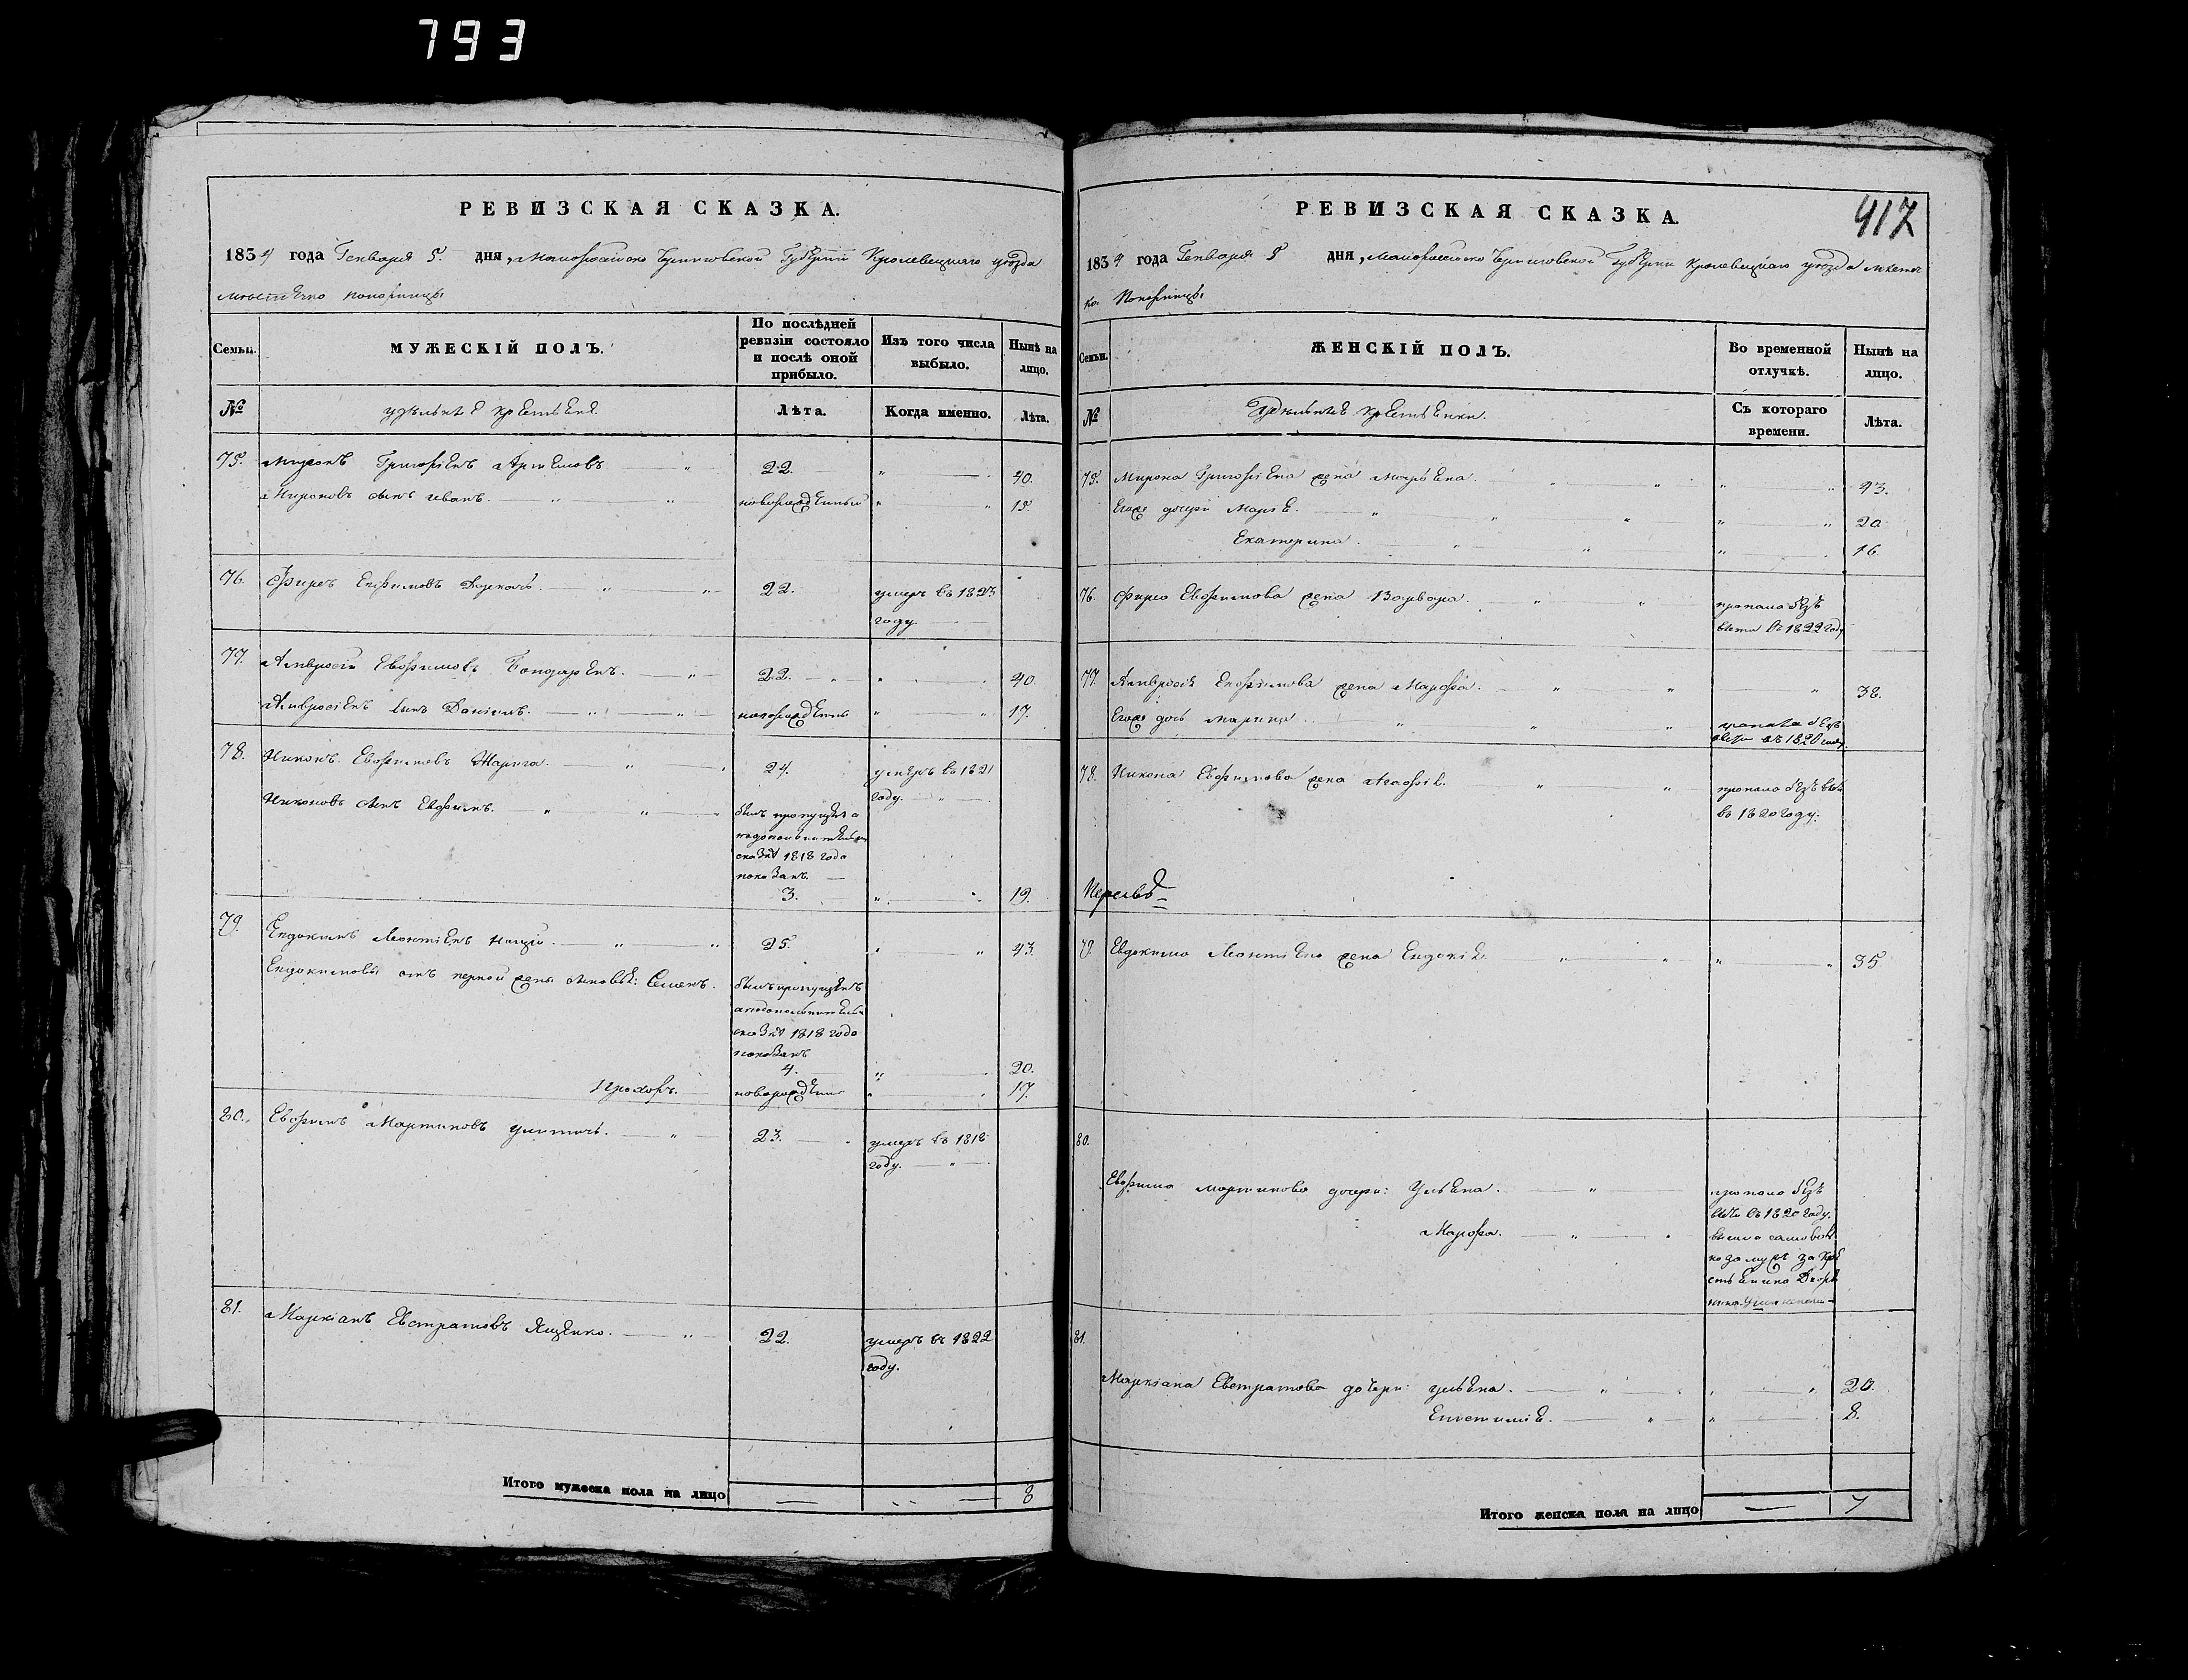 793
РЕВИЗСКАЯ СКАЗКА.
1834 года Генваря 5. дня, Малороссійско Черниговской Губерніи Кролевецкаго уезда
местечко Понорницы
Семьи.
МУЖЕСКІЙ ПОЛЪ.
По послѣдней ревизіи состояло и послѣ оной прибыло.
Изъ того числа выбыло.
Нынѣ на лицо.
№
удельные крестьяне
Лѣта.
Когда именно.
Лѣта.
75. Миронъ Григориевъ 22. 40.
Мироновъ сынъ Иванъ. новорожденный 15
76. Евфимовъ 22. умеръ въ 1823
году
77. Амвросій Евфимовъ Бондаревъ. 22. 40.
Амвросіевъ сынъ Даніилъ. новорожденный 17.
78. Никонъ Евфимовъ 24. умеръ въ 1821
году.
Никоновъ сынъ Евфимъ. былъ пропущенъ а
подополнительной
сказкѣ 1818 года
показанъ.
3. 19.
79. Евдокимъ Леонтіевъ 25. 43.
Евдокимовы отъ первой жены сыновья: Семенъ. былъ пропущенъ
а подополнительной
сказкѣ 1818 года
показанъ
4. 20.
Прохоръ. новорожденный 17.
80. Евфимъ Мартиновъ 23. умеръ въ 1818
году.
81. Маркіанъ Евстратовъ Ященко. 22. умеръ въ 1822
году.
Итого мужеска пола на лицо 8
417
РЕВИЗСКАЯ СКАЗКА.
1834 года Генваря 5 дня, Малороссійско Черниговской Губерніи Кролевецкаго уезда местеч
ко Понорницы
Семьи.
ЖЕНСКІЙ ПОЛЪ.
Во временной отлучкѣ.
Нынѣ на лицо.
№
Удельные крестьянки.
Съ котораго времени.
Лѣта.
75. Мирона Григоріева жена 43.
Егоже дочери Марія. 20
Екатерина. 16.
76. Евфимова жена Варвара. пропала безъ
вести въ 1822 году
77. Амвросія Евфимова жена Марфа. 38.
Егоже дочь Марина. пропала безъ
вести въ 1820 году.
78. Никона Евфимова жена Агафія. пропала безъ вести
въ 1820 году.
79. Евдокима Леонтіева жена Евдокія. 35
80.
Евфима Мартинова дочери: Ульяна. пропала безъ
вести въ 1820 году.
Марфа. вышла самоволь
но замужъ за кре
81.
Маркіана Евстратова дочери: Ульяна. 20.
8.
Итого женска пола на лицо 7